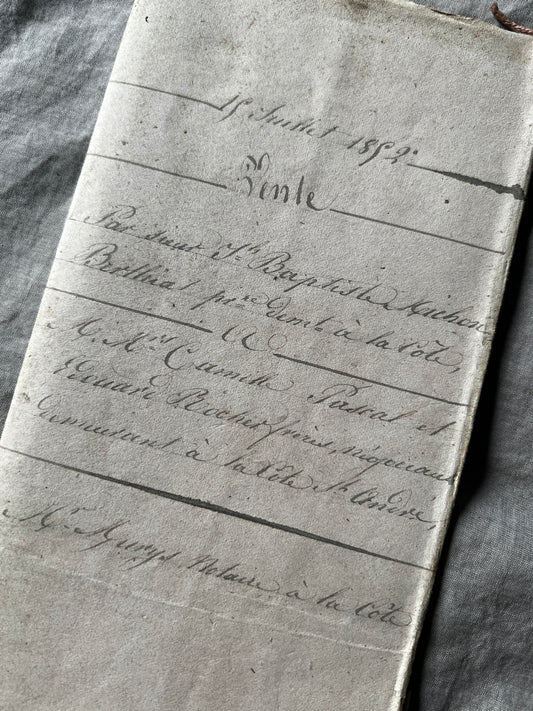 15 Juillet 1852.
Vente
Par sieur Jh. Baptiste
Berthiat pre. demt. à la Côte,
A
M. Mrs. Camille Pascal et
Edouard Rocher frères, négociants
demeurant à la Côte St. André,
Me. Notaire à la Côte